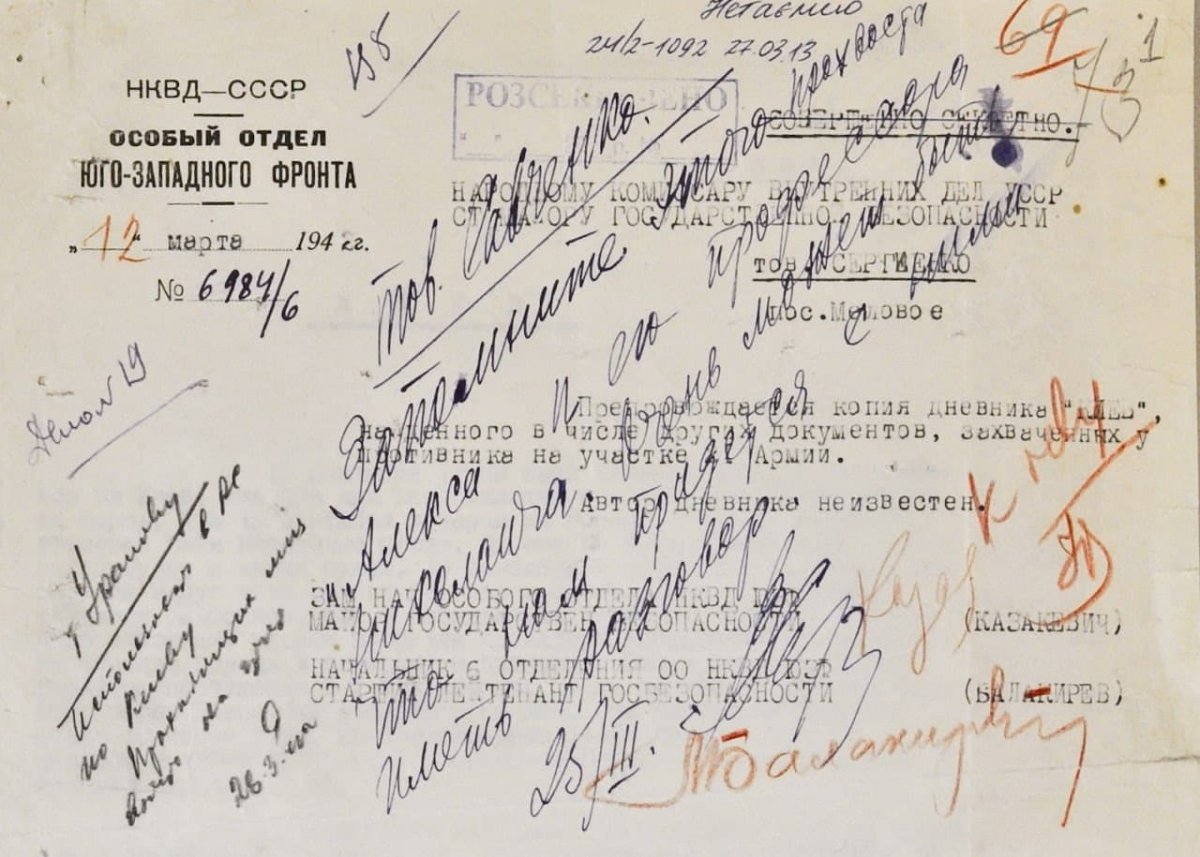 Нетаємно
24/2-1092 27.03.13
69
73
1
НКВД—СССР
ОСОБЫЙ ОТДЕЛ
ЮГО-ЗАПАДНОГО ФРОНТА
„12“ марта 1942 г.
№ 6984/6
РОЗСЕКРЕЧЕНО
СОВЕРШЕННО СЕКРЕТНО.
НАРОДНОМУ КОМИССАРУ ВНУТРЕННИХ ДЕЛ УССР
СТ.МАЙОРУ ГОСУДАРСТВЕННОЙ БЕЗОПАСНОСТИ
тов. СЕРГИЕНКО
пос.Меловое
Препровождается копия дневника "КИЕВ",
найденного в числе других документов, захваченных у
противника на участке Армии.
Автор дневника неизвестен.
ЗАМ НАЧ ОСОБОГО ОТДЕЛА НКВД ЮЗФ
МАЙОР ГОСУДАРСТВЕН БЕЗОПАСНОСТИ (КАЗАКЕВИЧ)
НАЧАЛЬНИК 6 ОТДЕЛЕНИЯ ОО НКВД ЮЗФ
СТАРШИЙ ЛЕЙТЕНАНТ ГОСБЕЗОПАСНОСТИ (БАЛАКИРЕВ)
Тов. Савченко.
Запомните этого прохвоста
"Алекса и его профессора
Николаича. Очень может быть
что нам придется с ними
иметь разговор
25/III.
Дело № 19
т
по Киеву
на
28.3.
К делу
Балакирев